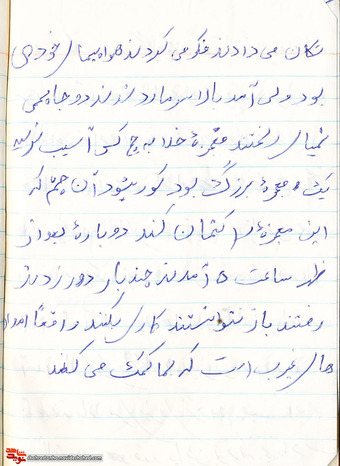 تکان می دادند فکر می کردند هواپیمای خودی
بود ولی آمد بالا سر ما رد شدند دو جا بمی
شیمیای ریختند معجزهٔ خدا به هیچ کس آسیب نرسید
یک معجزهٔ بزرگ بود کور بشود آن چشم که
این معجزه را کتمان کند دوبارهٔ بعد از
ظهر ساعت ۵ آمدند چند بار دور زدند
رفتند باز نتوانستند کاری بکنند واقعاً امداد
های غیب است که بما کمک می کند